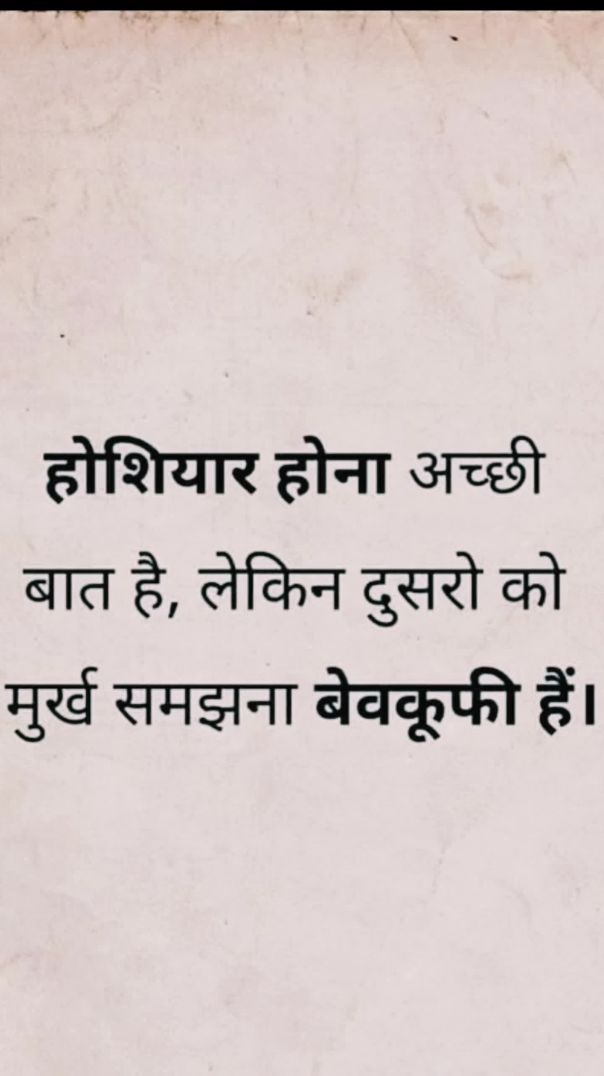 होशियार होना अच्छी
बात है, लेकिन दुसरो को
मुर्ख समझना बेवकूफी हैं।